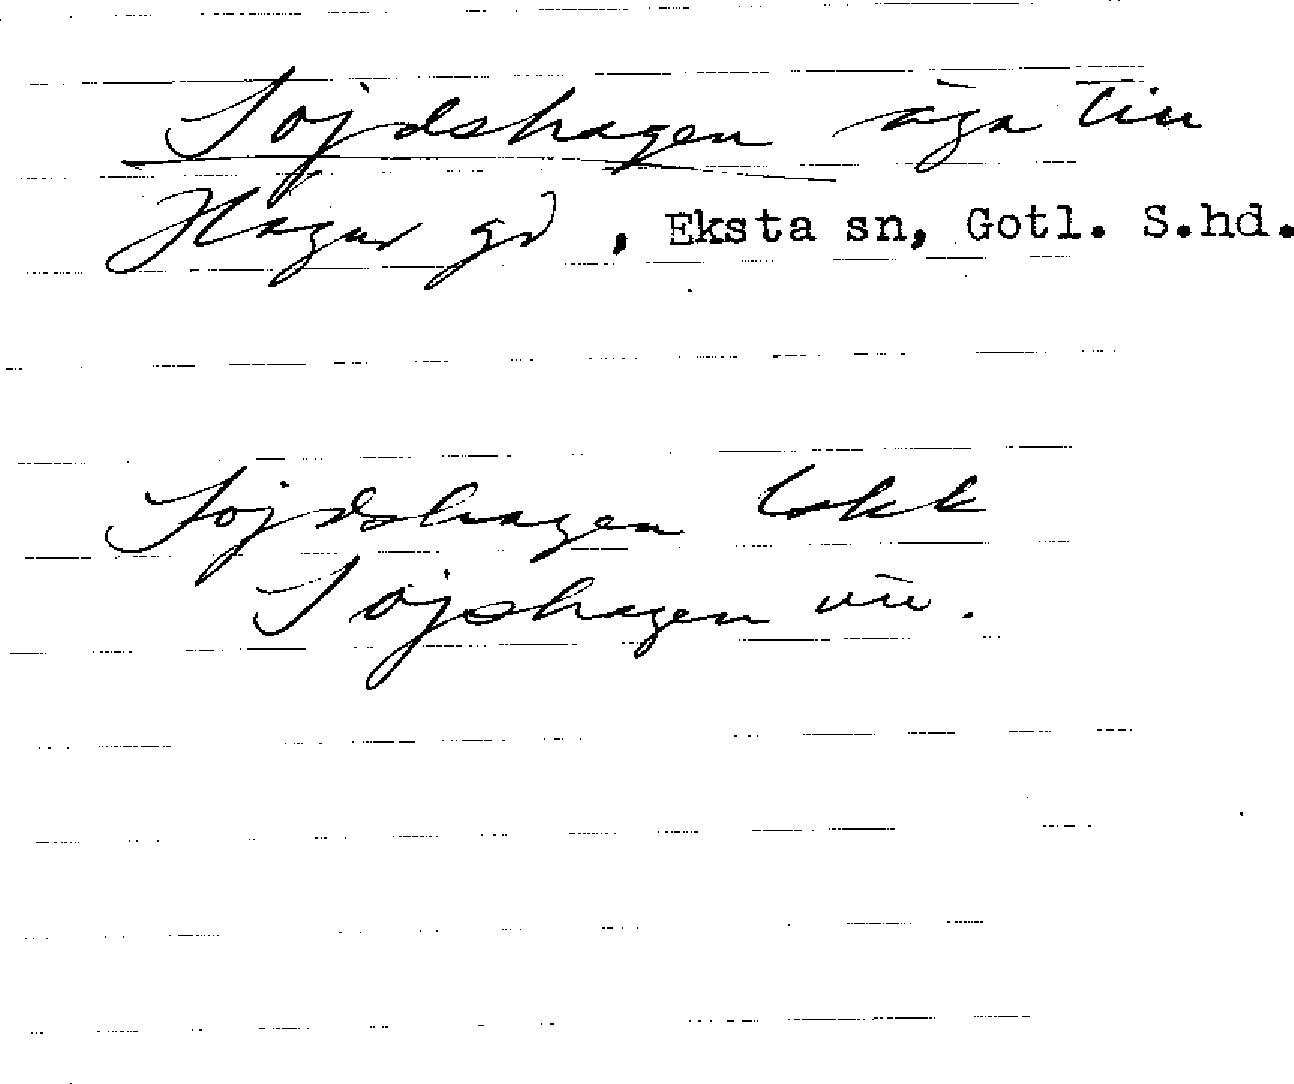 Sojdshagen äga till
Hägur gd, Eksta sn, Gotl. S.hd.
Sojdshagen Lokk
Sojshagen utt.